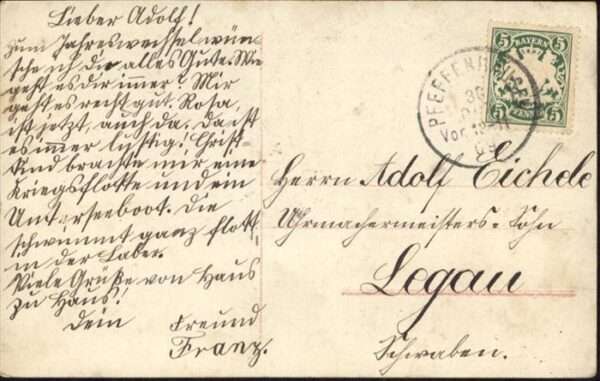 Lieber Adolf!
Zum Jahreswechsel wün-
sche ich dir alles Gute. Wie
geht es dir immer? Mir
geht es recht gut. Rosa,
ist jetzt, auch da. Da ist
es immer lustig! Christ-
kind brachte mir eine
Kriegsflotte und ein
Unterseeboot. Die
schwimmt ganz flott
in der Laber.
Viele Grüße von Haus
zu Haus!
Dein Freund
Franz.
5 BAYERN 5
5 PFENNIG 5
PFEFFENHAUSEN
30
Vor.
Herrn Adolf Eichele
Uhrmachermeisters-Sohn
Legau
Schwaben.